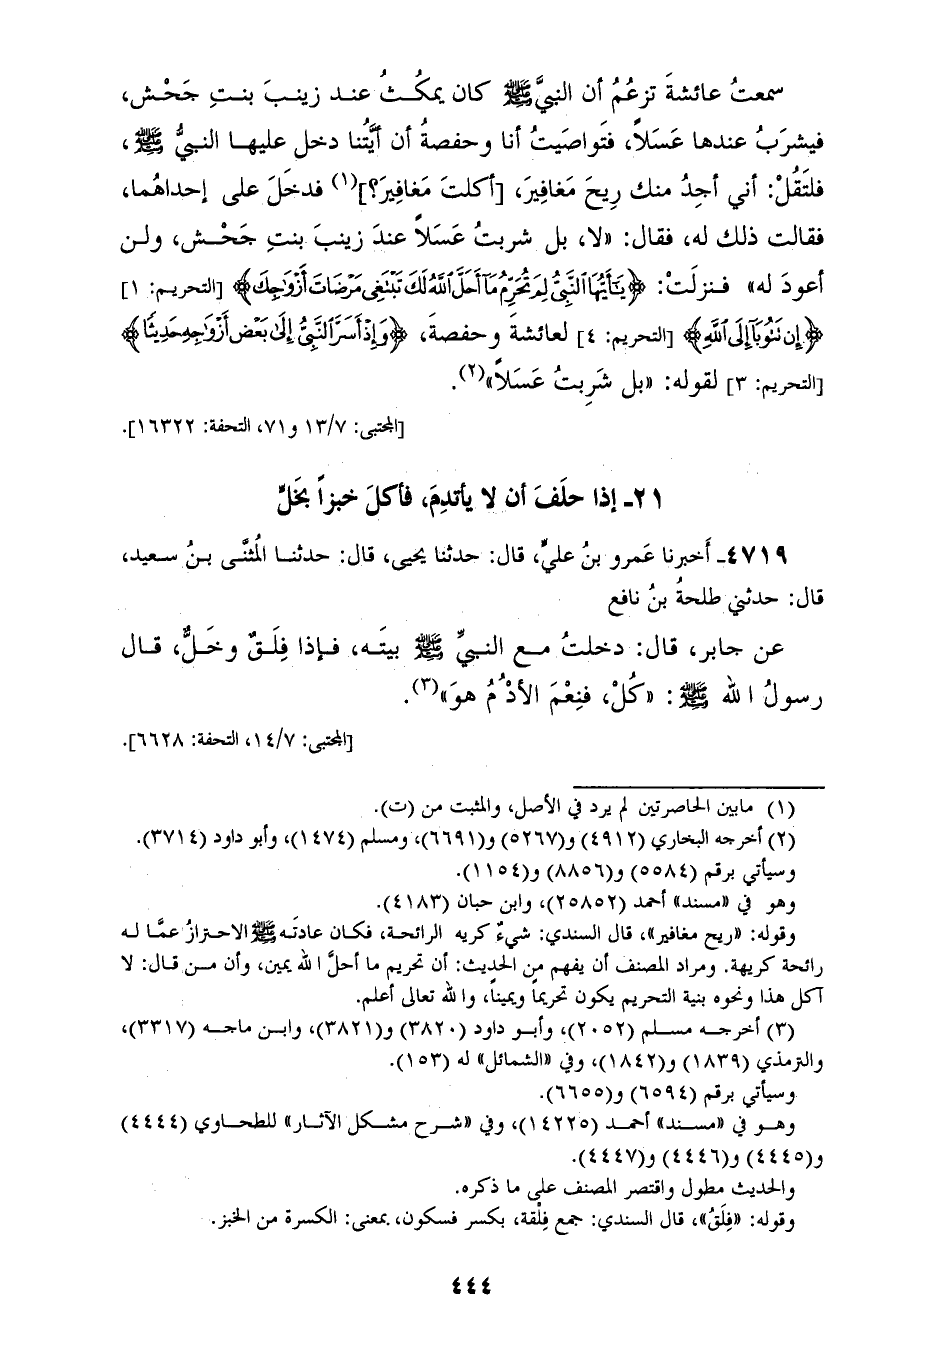 سمعتُ عائشةَ تزعُمُ أن النبيَّ ﷺ كان يمكُــثُ عنـد زينـبَ بنـتِ جَحْـش،
فيشرَبُ عندها عَسَلاً، فتَواصَيتُ أنا وحفصةُ أن أيَّتُنا دخل عليهـا النـبيُّ ﷺ،
فلتَقُلْ: أني أجِدُ منك رِيحَ مَغافيرَ، [أكلتَ مَغافِيرَ؟](١) فدخَلَ على إحداهُما،
فقالت ذلك له، فقال: «لا، بل شربتُ عَسَلاً عندَ زينبَ بنتِ جَحْـش، ولـن
أعودَ له» فـنزلَتْ: ﴿يَٰٓأَيُّهَا ٱلنَّبِىُّ لِمَ تُحَرِّمُ مَآ أَحَلَّ ٱللَّهُ لَكَ تَبْتَغِى مَرْضَاتَ أَزْوَٰجِكَ﴾ [التحريم: ١]
﴿إِن تَتُوبَآ إِلَى ٱللَّهِ﴾ [التحريم: ٤] لعائشةَ وحفصةَ، ﴿وَإِذْ أَسَرَّ ٱلنَّبِىُّ إِلَىٰ بَعْضِ أَزْوَٰجِهِۦ حَدِيثًا﴾
[التحريم: ٣] لقوله: «بل شَرِبتُ عَسَلاً»(٢).
[المجتبى: ١٣/٧ و٧١، التحفة: ١٦٣٢٢].
٢١ـ إذا حلَفَ أن لا يأتدِمَ، فأكلَ خبزاً بخَلٍّ
٤٧١٩ـ أَخبرنا عَمرو بنُ عليٍّ، قال: حدثنا يحيى، قال: حدثنـا المُثنَّى بـنُ سـعيد،
قال: حدثني طلحةُ بنُ نافع
عن جابر، قال: دخلتُ مـع النـبيِّ ﷺ بيتَـه، فـإذا فِلَـقٌ وخَـلٌّ، قـال
رسولُ الله ﷺ: «كُلْ، فنِعْمَ الأُدْمُ هوَ»(٣).
[المجتبى: ١٤/٧، التحفة: ٦٦٢٨].
(١) مابين الحاصرتين لم يرد في الأصل، والمثبت من (ت).
(٢) أخرجه البخاري (٤٩١٢) و(٥٢٦٧) و(٦٦٩١)، ومسلم (١٤٧٤)، وأبو داود (٣٧١٤).
وسيأتي برقم (٥٥٨٤) و(٨٨٥٦) و(١١٥٤).
وهو في «مسند» أحمد (٢٥٨٥٢)، وابن حبان (٤١٨٣).
وقوله: «ريح مغافير»، قال السندي: شيءٌ كريه الرائحة، فكـان عادتَـه ﷺ الاحـتراز عمَّـا لـه
رائحة كريهة. ومراد المصنف أن يفهم من الحديث: أن تحريم ما أحلَّ الله يمين، وأن مـن قـال: لا
آكل هذا ونحوه بنية التحريم يكون تحريماً ويميناً، والله تعالى أعلم.
(٣) أخرجـه مسـلم (٢٠٥٢)، وأبـو داود (٣٨٢٠) و(٣٨٢١)، وابـن ماجـه (٣٣١٧)،
والترمذي (١٨٣٩) و(١٨٤٢)، وفي «الشمائل» له (١٥٣).
وسيأتي برقم (٦٥٩٤) و(٦٦٥٥).
وهـو في «مسـند» أحمـد (١٤٢٢٥)، وفي «شـرح مشـكل الآثـار» للطحـاوي (٤٤٤٤)
و(٤٤٤٥) و(٤٤٤٦) و(٤٤٤٧).
والحديث مطول واقتصر المصنف على ما ذكره.
وقوله: «فِلَقُ»، قال السندي: جمع فِلْقة، بكسر فسكون، بمعنى: الكسرة من الخبز.
٤٤٤